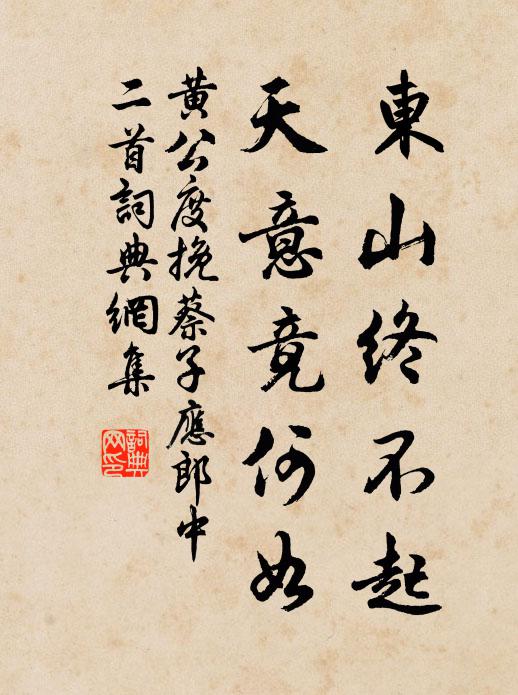 東山終不起
天意竟何如
黃公度挽蔡子應郎中
二首詞典網集
詞典
网印